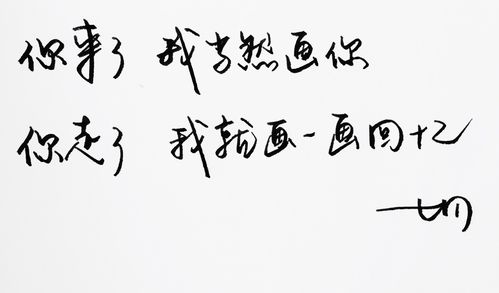 你来了 我当然画你
你走了 我就画一画回忆